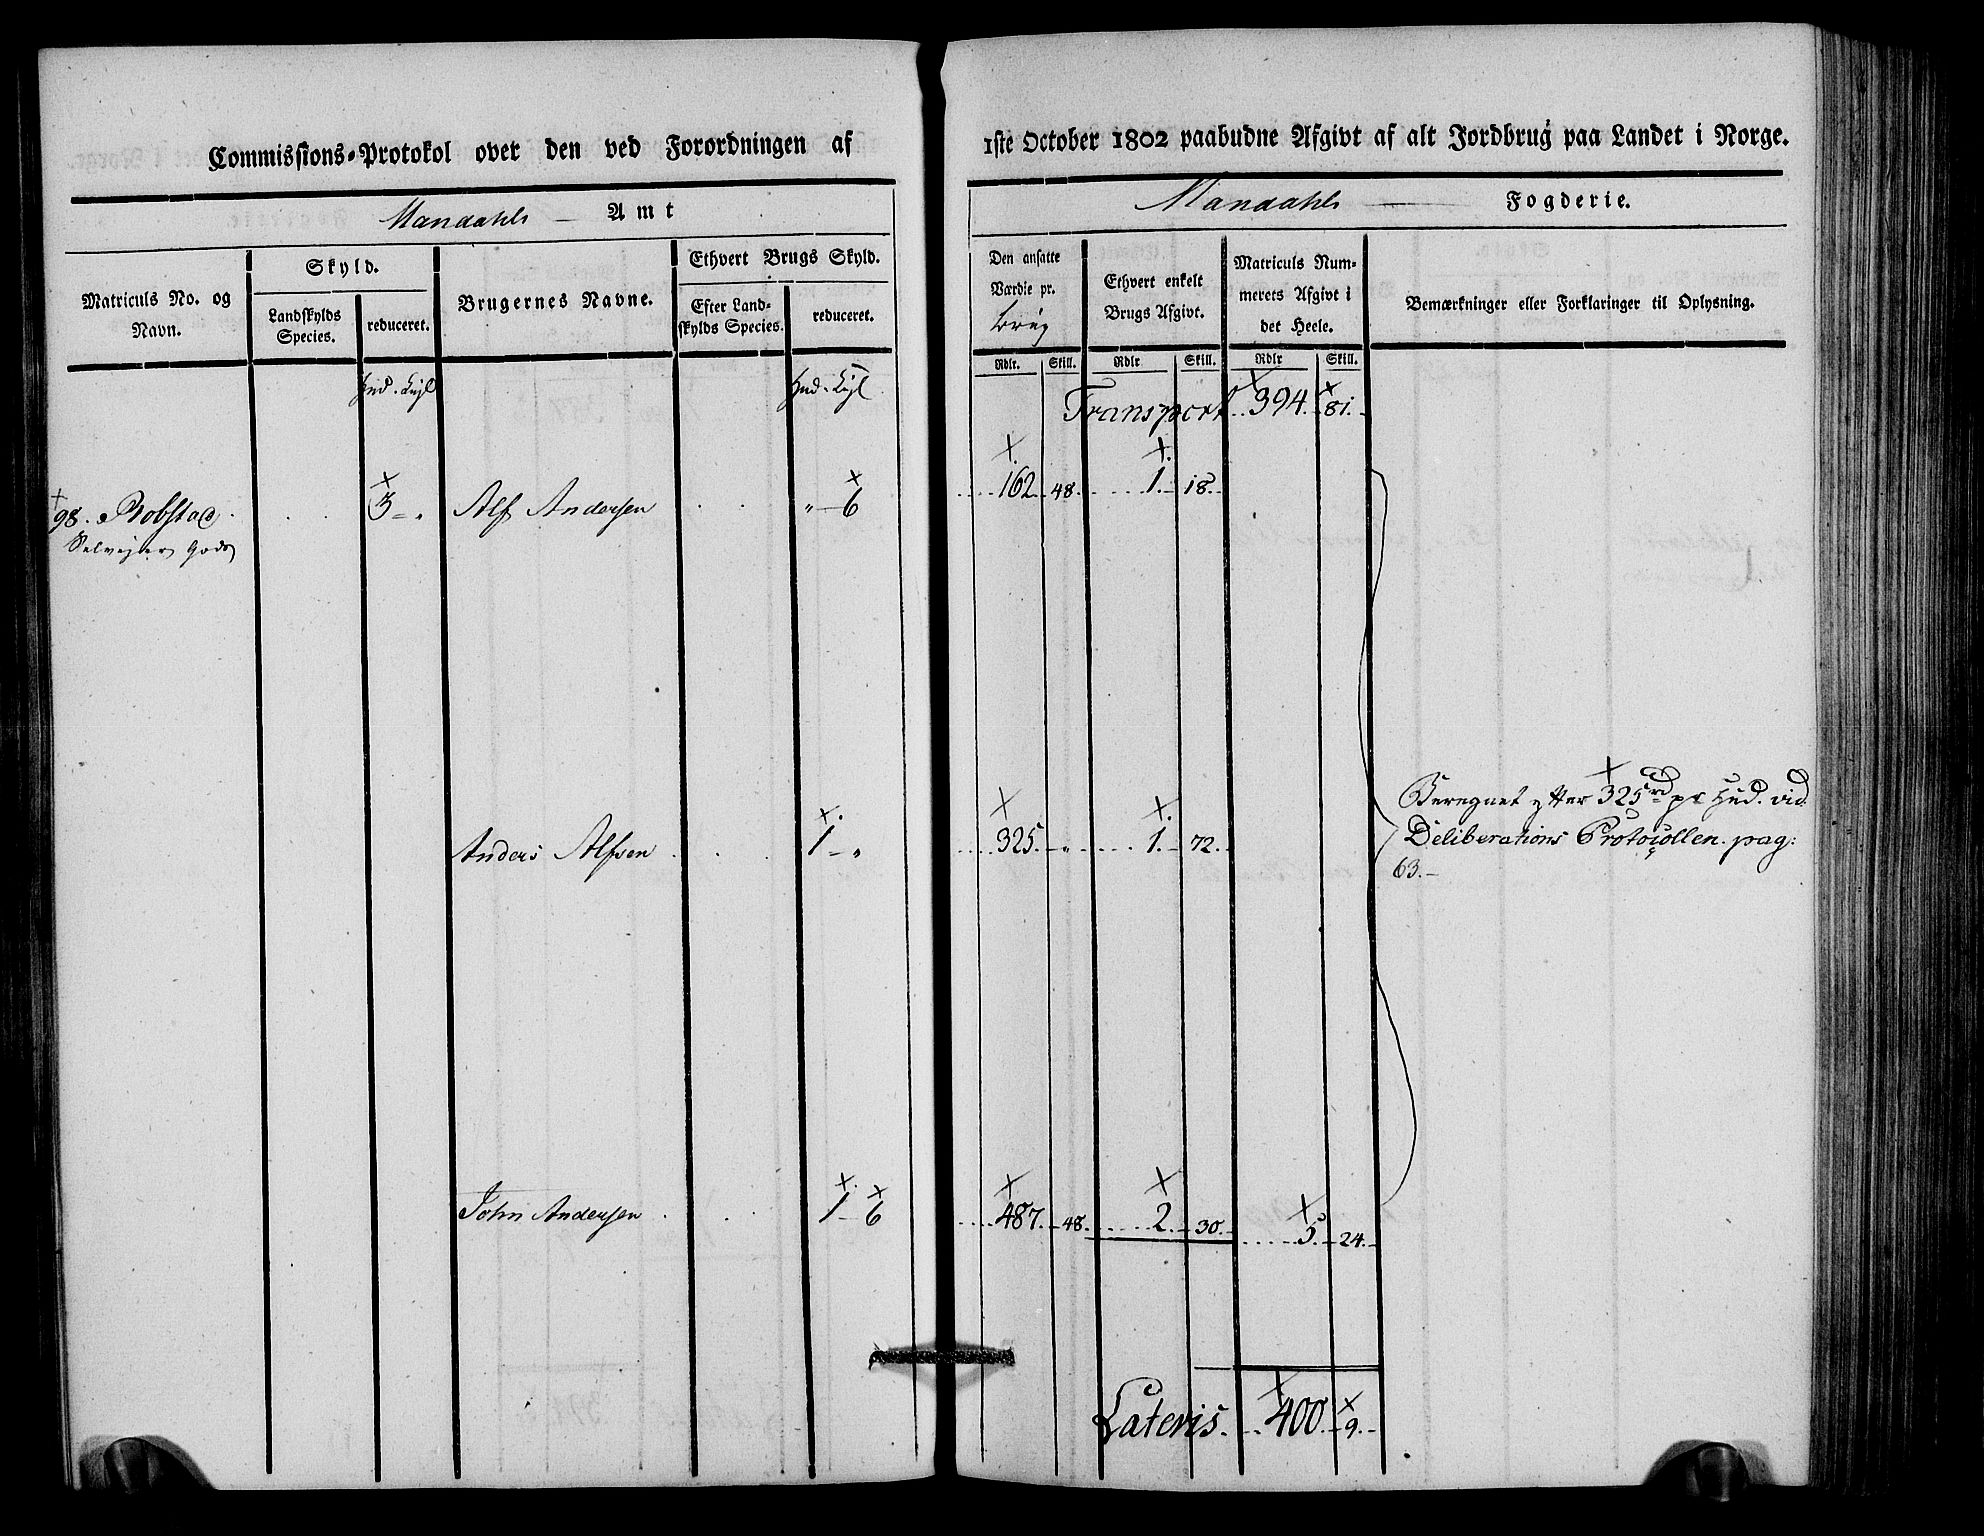 Commissions-Protokol over den ved Forordningen af
Mandahls — Amt
Matriculs No. og Navn.
Skyld.
Landskylds Species.
reduceret.
Brugernes Navne.
Ethvert Brugs Skyld.
Efter Land-
skylds Species.
reduceret.
Hud. Hud.
98. Robstad. 3 – „ Alf Andersen „ – 6
Selvejer Gods
Anders Alfsen 1 – „
John Andersen 1 – 6
1ste October 1802 paabudne Afgivt af alt Jordbrug paa Landet i Norge.
Mandahls — Fogderie.
Den ansatte
Værdie pr.
brug
Ethvert enkelt
Brugs Afgivt.
Matriculs Num-
merets Afgivt i
det Heele.
Bemærkninger eller Forklaringer til Oplysning.
Rdlr. Skill. Rdlr Skill. Rdlr Skill.
Transport 394. 81.
162 48. 1. 18.
Beregnet efter 325 rd pr Hud. vid.
325. „ 1. 72. Deliberations Protocollen. pag:
63. –
487. 48. 2. 30. 5. 24.
Lateris. 400. 9.